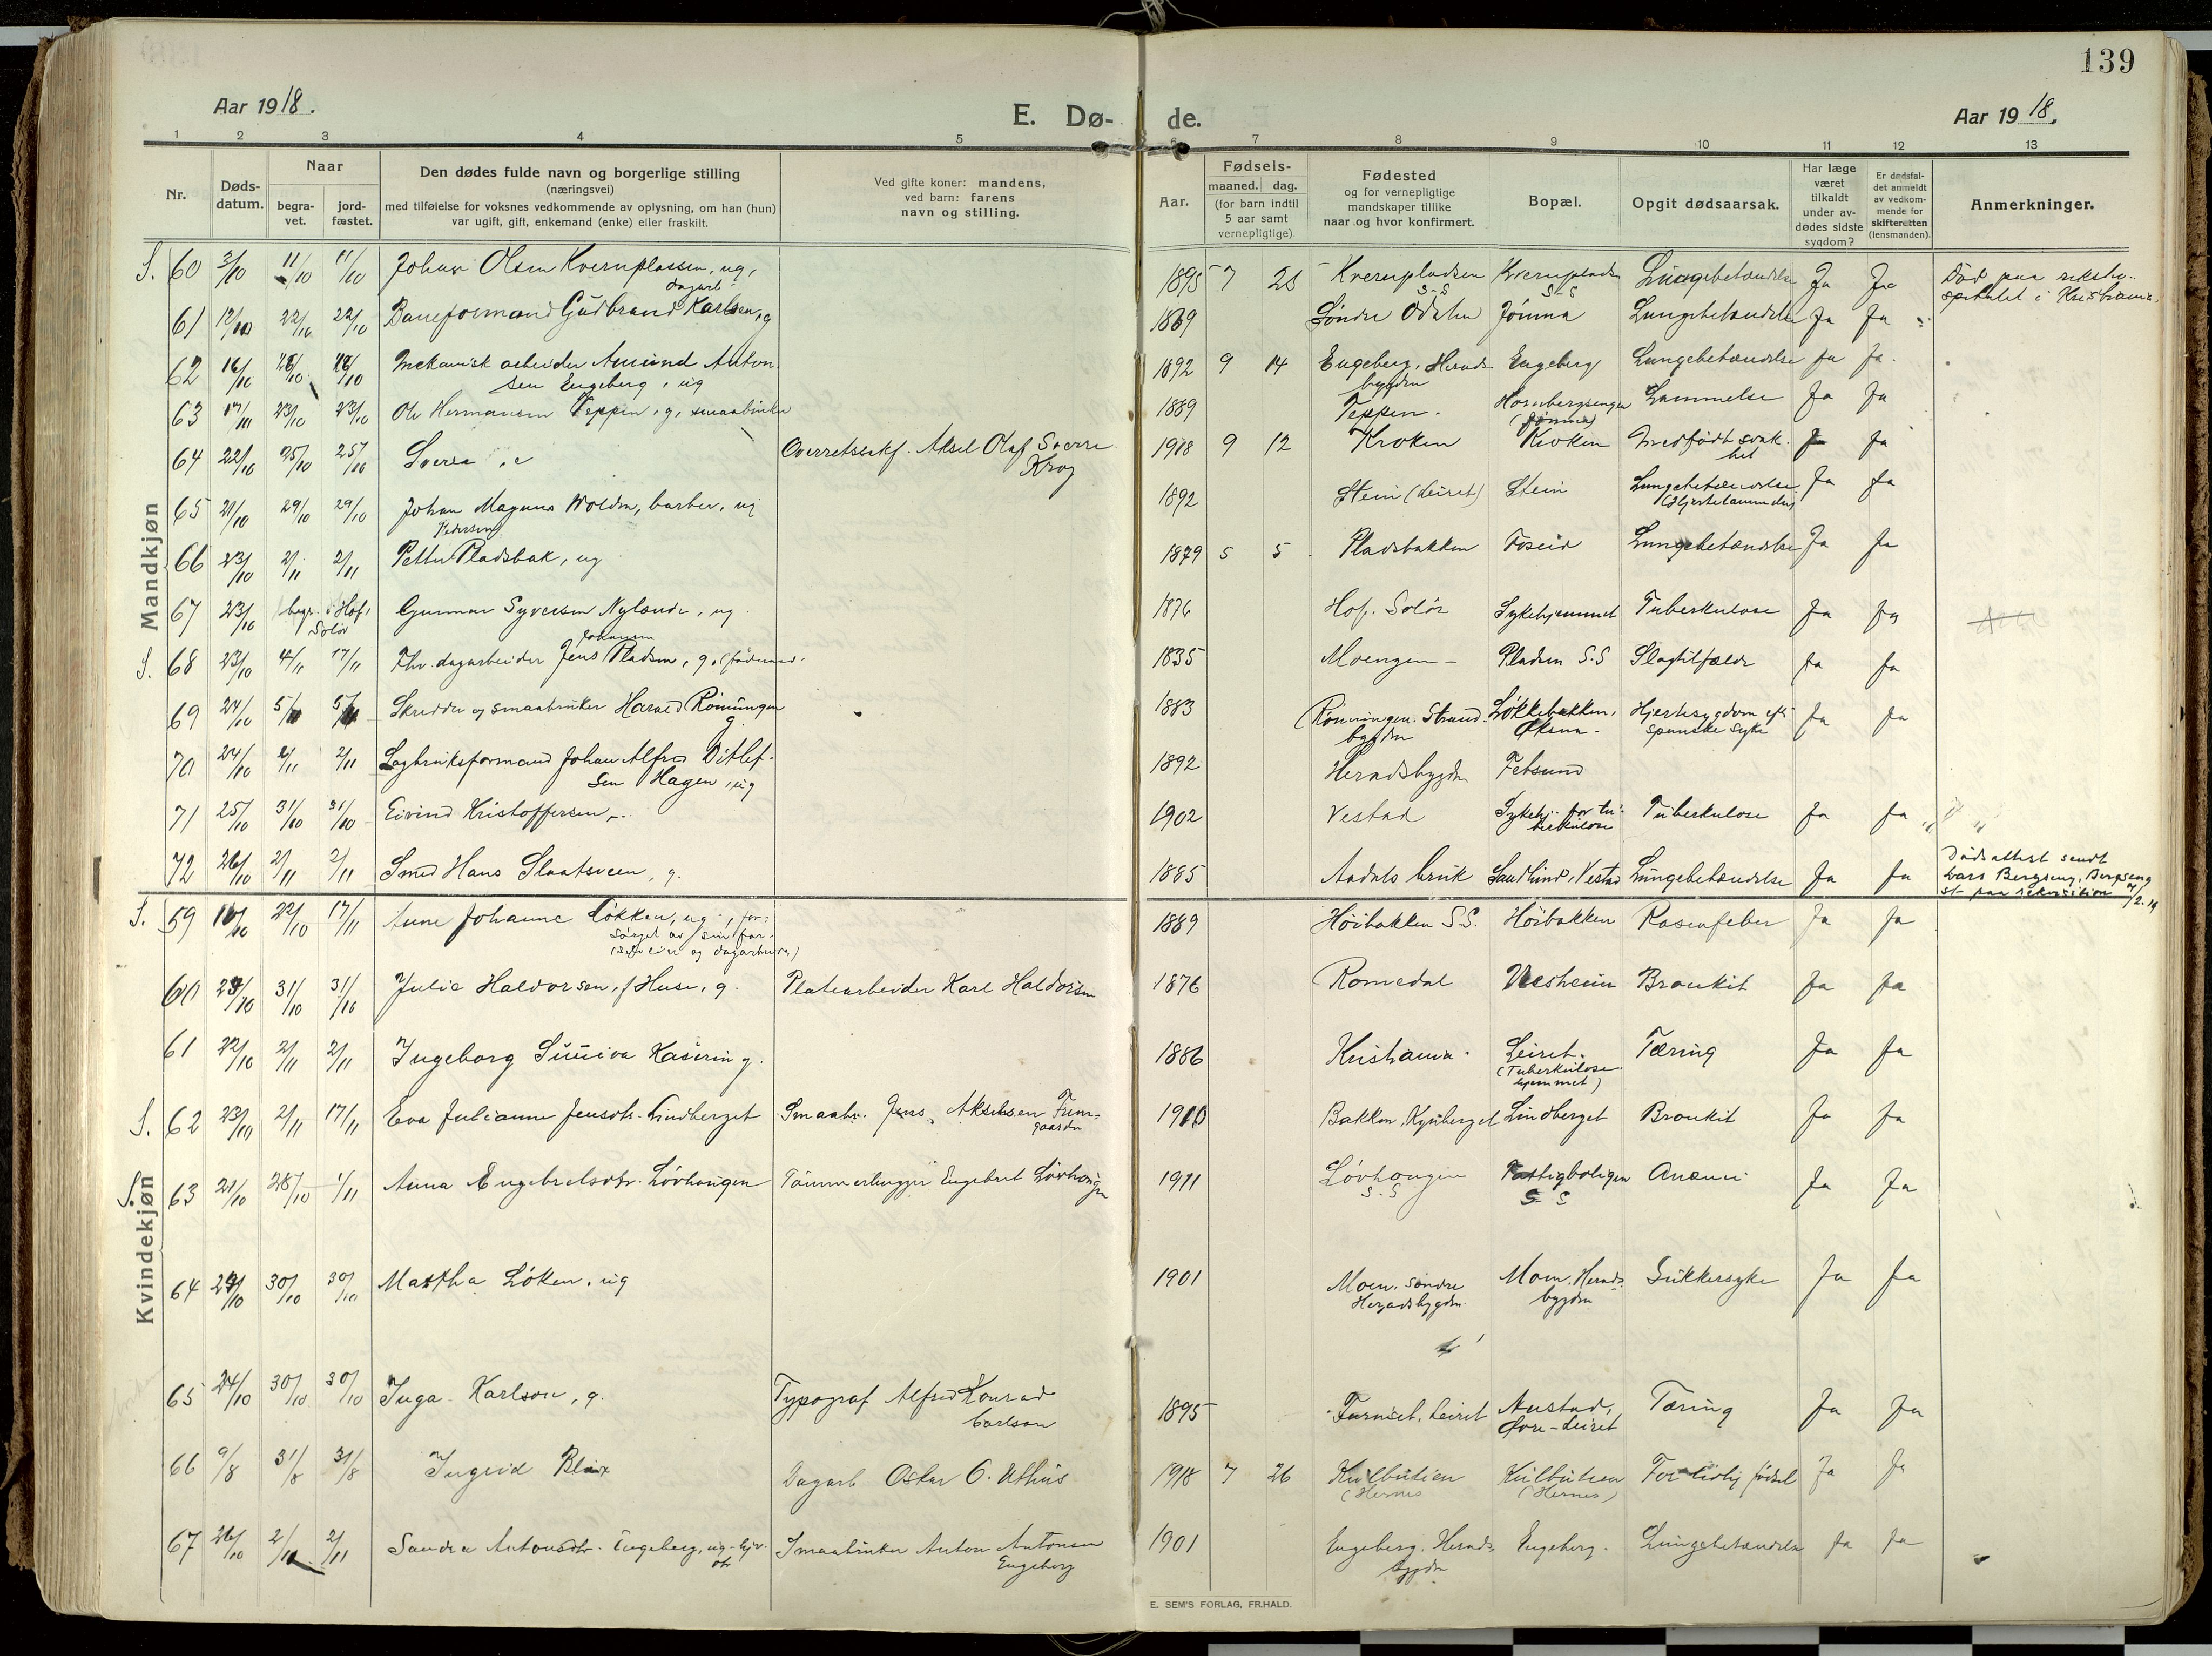 139
Aar 1918.
E. Dø-
de.
Aar 1918.
1 2 3 4 5 6 7 8 9 10 11 12 13
Nr.
Døds-
datum.
Naar
begra-
vet.
jord-
fæstet.
Den dødes fulde navn og borgerlige stilling
(næringsvei)
med tilføielse for voksnes vedkommende av oplysning, om han (hun)
var ugift, gift, enkemand (enke) eller fraskilt.
Ved gifte koner: mandens,
ved barn: farens
navn og stilling.
Aar.
Fødsels-
maaned. dag.
(for barn indtil
5 aar samt
vernepligtige)
Fødested
og for vernepligtige
mandskaper tillike
naar og hvor konfirmert.
Bopæl.
Opgit dødsaarsak.
Har læge
været
tilkaldt
under av-
dødes sidste
sygdom?
Er dødsfal-
det anmeldt
av vedkom-
mende for
skifteretten
(lensmanden).
Anmerkninger.
Mandkjøn
S. 60 3/10 11/10 11/10 Johan Olsen Kvernplassen, ug, 1895 7 25 Kvernpladsen Kvernpladsen Lungebetændelse Ja Ja Død paa riksho-
dagarb. S-S S-S spitalet i Kristiania.
61 12/10 22/10 22/10 Baneformand Gudbrand Karlsen, g 1869 Søndre Odalen Jømna Lungebetændelse Ja Ja
62 16/10 26/10 26/10 Mekanisk arbeider Amund Anton- 1892 9 14 Engeberg, Herads- Engeberg Lungebetændelse Ja Ja
sen Engeberg, ug bygden
63 17/10 23/10 23/10 Ole Hermansen Teppen, g, smaabruker 1889 Teppen. Hornbergsengen Lammelse Ja Ja
(Jømna)
64 22/10 25/10 25/10 Sverre Overretssakf. Aksel Olaf Sverre 1918 9 12 Kroken Kroken Medfødt svak- Ja Ja
Krog het
65 21/10 29/10 29/10 Johan Magnus Wolden, barber, ug 1892 Stein (Leiret) Stein Lungebetændelse Ja Ja
(Hjertelammelse)
Pedersen
66 23/10 2/11 2/11 Petter Pladsbak, ug 1879 5 5 Pladsbakken Foseid Lungebetændelse Ja Ja
67 23/10 begr. i Hof, Gunnar Syversen Nylænde, ug. 1876 Hof, Solør Sykehjemmet Tuberkulose Ja Ja
Solør
Johansen
S. 68 23/10 4/11 17/11 Fhv. dagarbeider Jens Pladsen, g, (føderaad. 1835 Moengen - Pladsen S.S Slagtilfælde Ja Ja
69 24/10 5/11 5/11 Skrædder og smaabruker Harald Rønningen 1883 Rønningen. Strand- Løkkebakken, Hjertesygdom eft. Ja Ja
g. bygden Øksna - spanske syke
70 24/10 2/11 2/11 Sagbruksformand Johan Alfred Ditlef- 1892 Heradsbygden Fetsund
sen Hagen, ug
71 25/10 31/10 31/10 Eivind Kristoffersen, - 1902 Vestad Sykehj. for tu- Tuberkulose Ja Ja
berkulose
72 26/10 2/11 2/11 Smed Hans Slaatsveen, g. 1885 Aadals bruk Sandlund, Vestad Lungebetændelse Ja Ja Dødsattest sendt
Lars Bergseng, Bergseng
st- paa rekvisition
Kvindekjøn
S. 59 10/10 22/10 17/11 Anne Johanne Løkken, ug -, for- 1889 Høibakken S.S. Høibakken Rosenfeber Ja Ja
sørget av sin far-
(selveier og dagarbeider)
60 29/10 31/10 31/10 Julie Haldorsen, f Huse, g. Platearbeider Karl Haldorsen 1876 Romedal Vesheim Bronkit Ja Ja
61 22/10 2/11 2/11 Ingeborg Suniva Kaserin g. 1886 Kristiania. Leiret. Tæring Ja Ja
(Tuberkulose-
hjemmet)
S. 62 23/10 2/11 17/11 Eva Julianne Jensdtr. Lindberget Smaabr. Jens Akselsen 1910 Bakken, Kynberget Lindberget Bronkit Ja Ja
S. 63 21/10 28/10 1/11 Anna Engebretsdtr. Løvhaugen Tømmerhugger Engebret Løvhaugen 1911 Løvhaugen Fattigboligen Anæmi Ja Ja
S-S S S
64 24/10 30/10 30/10 Martha Løken, ug 1901 Moen, søndre Moen, Herads- Sukkersyke Ja Ja
Heradsbygden bygden
65 24/10 30/10 30/10 Inga Karlson, g. Typograf Alfred Konrad 1895 Furuset, Leiret Austad, Tæring Ja Ja
Carlson Øvre-Leiret
66 9/8 31/8 31/8 Ingrid Blix Dagarb. Oskar O. Uthus 1918 7 26 Kulbutien Kulbutien For tidlig fødsel Ja Ja
(Hernes (Hernes)
67 26/10 2/11 2/11 Sandra Antonsdtr. Engeberg, ug - Smaabruker Anton Antonsen 1901 Engeberg. Herads- Engeberg. Lungebetændelse Ja Ja
Engeberg bygden
E. SEM'S FORLAG, FR.HALD.